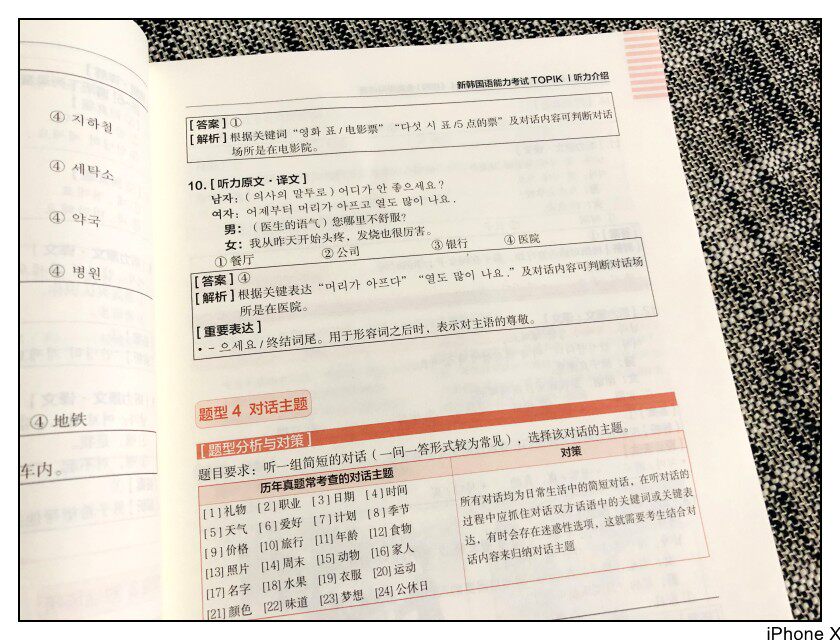 ④ 지하철
④ 세탁소
④ 약국
④ 병원
④ 地铁
车内。
新韩国语能力考试 TOPIK Ⅰ 听力介绍
[答案] ①
[解析] 根据关键词“영화 표/电影票”“다섯 시 표/5点的票”及对话内容可判断对话
场所是在电影院。
10. [听力原文·译文]
남자: (의사의 말투로) 어디가 안 좋으세요?
여자: 어제부터 머리가 아프고 열도 많이 나요.
男: (医生的语气) 您哪里不舒服?
女: 我从昨天开始头疼, 发烧也很厉害。
① 餐厅 ② 公司 ③ 银行 ④ 医院
[答案] ④
[解析] 根据关键表达“머리가 아프다”“열도 많이 나요.”及对话内容可判断对话场
所是在医院。
[重要表达]
• -으세요/终结词尾。用于形容词之后时, 表示对主语的尊敬。
题型 4 对话主题
[题型分析与对策]
题目要求: 听一组简短的对话 (一问一答形式较为常见), 选择该对话的主题。
历年真题常考查的对话主题
[1] 礼物 [2] 职业 [3] 日期 [4] 时间
[5] 天气 [6] 爱好 [7] 计划 [8] 季节
[9] 价格 [10] 旅行 [11] 年龄 [12] 食物
[13] 照片 [14] 周末 [15] 动物 [16] 家人
[17] 名字 [18] 水果 [19] 衣服 [20] 运动
[21] 颜色 [22] 味道 [23] 梦想 [24] 公休日
对策
所有对话均为日常生活中的简短对话, 在听对话的
过程中应抓住对话双方话语中的关键词或关键表
达, 有时会存在迷惑性选项, 这就需要考生结合对
话内容来归纳对话主题
iPhone X